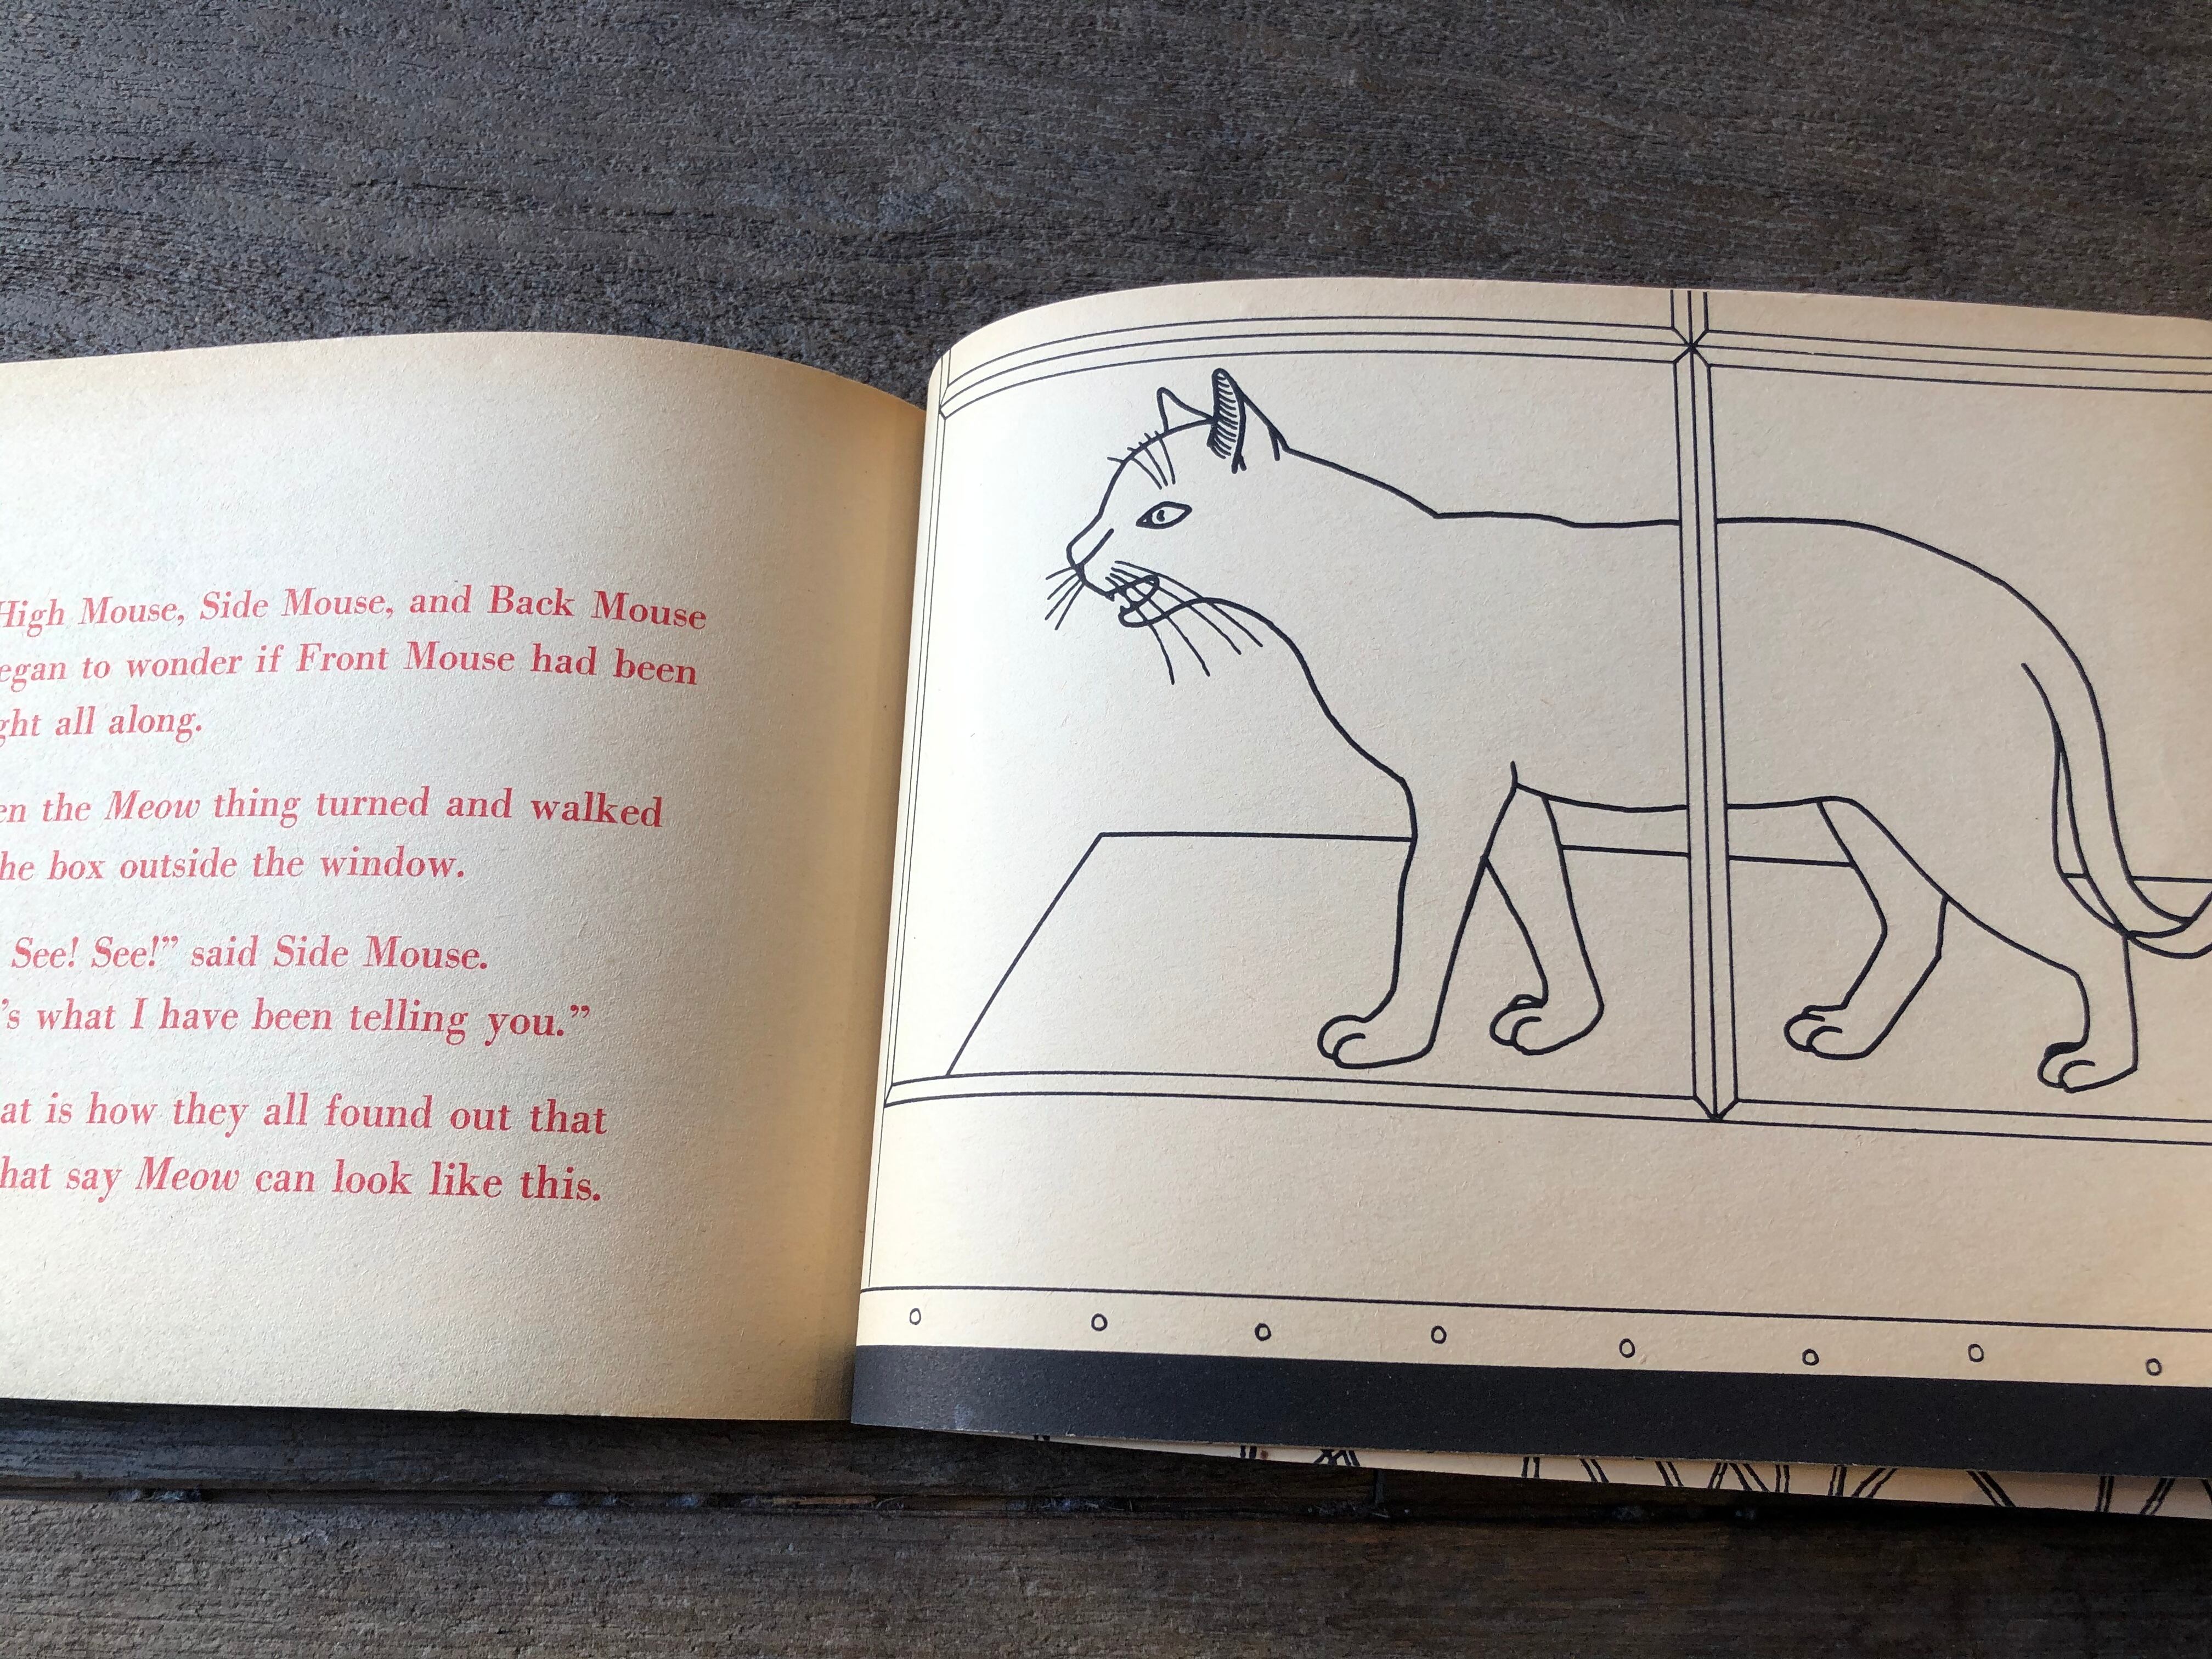 High Mouse, Side Mouse, and Back Mouse
egan to wonder if Front Mouse had been
ght all along.
en the Meow thing turned and walked
he box outside the window.
See! See!” said Side Mouse.
’s what I have been telling you.”
at is how they all found out that
hat say Meow can look like this.